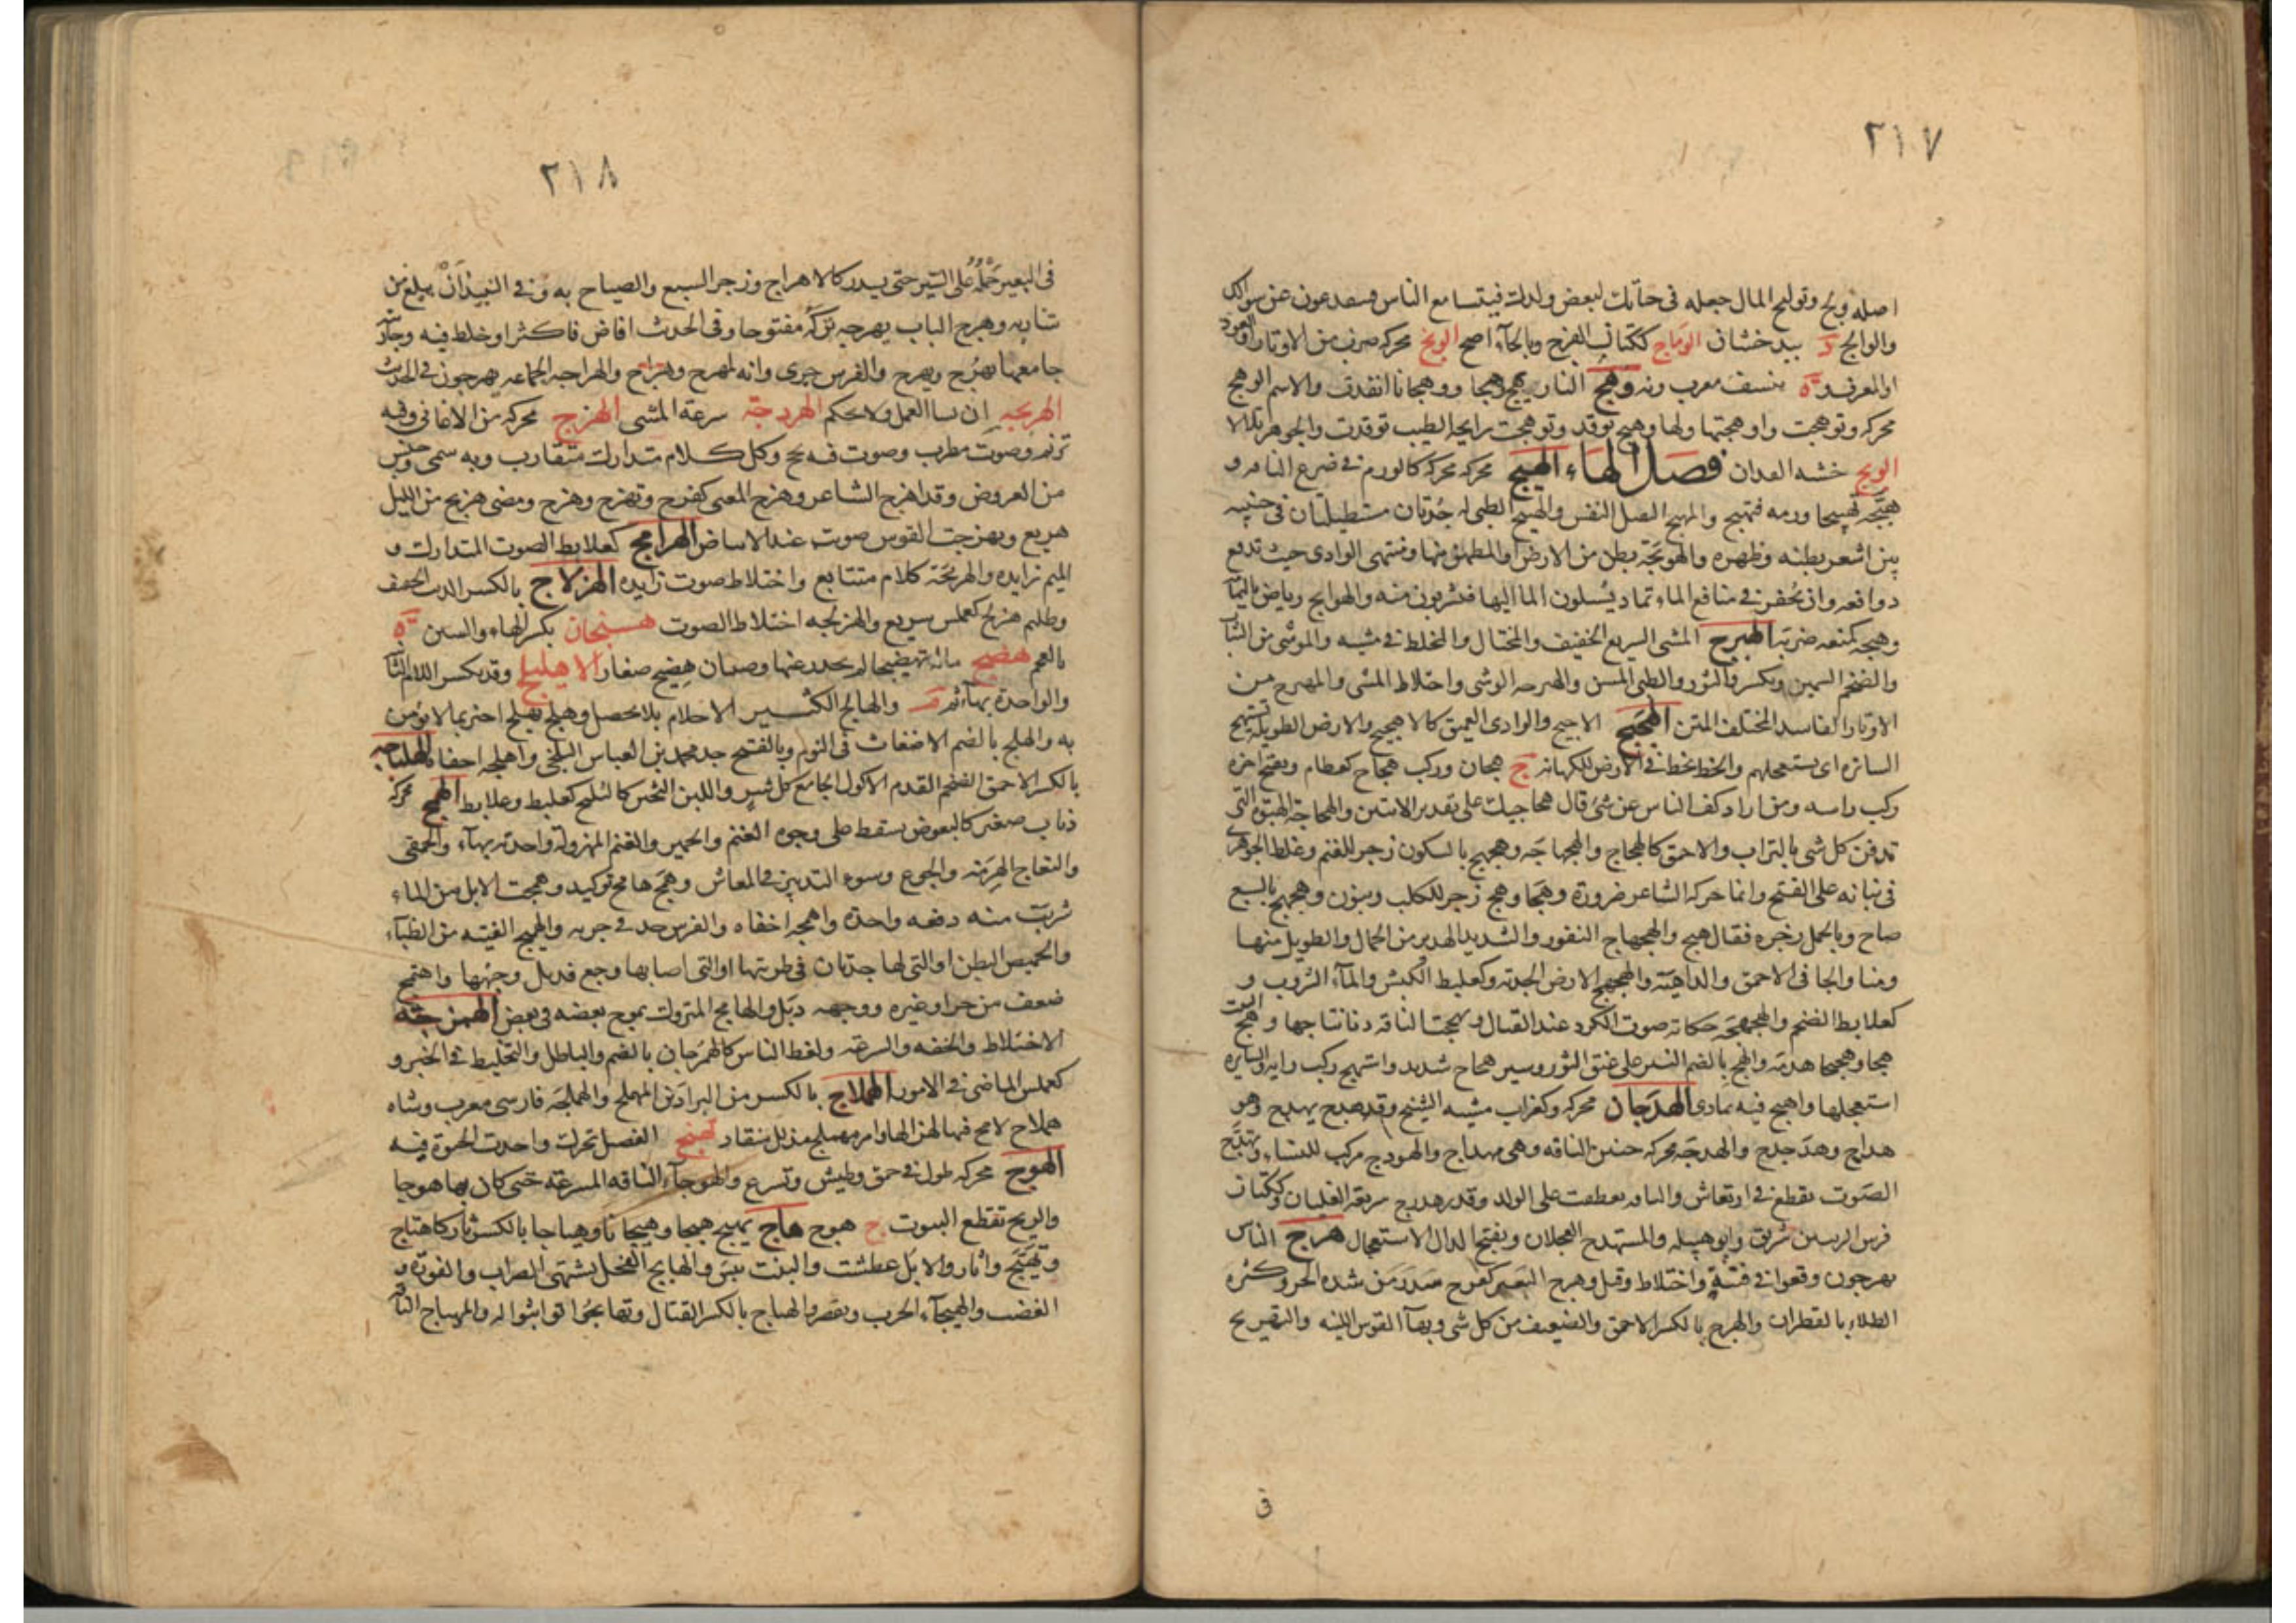 ٢١٧
اصله ولج وتوليج المال جعله في حياتك لبعض ولدك فيتسامع الناس
والوالج د ببدخشان الوماج ككتان الفرج وبالحاء اصح الونج محركة ضرب من الاوتار او العود
او المعرف وة بنسف معرب ونه وهج النار تهج وهجا ووهجانا اتقدت والاسم الوهج
محركة وتوهجت واوهجتها ولها وهيج توقد وتوهجت رايحة الطيب توقدت والجوهر تلالا
الويج خشبة الفدان فصل الهاء الهبج محركة كالورم في ضرع الناقة و
هبجه تهبيجا ورمه فتهبج والمهبج الثقيل النفس والهبيج الظبي له جدتان مستطيلتان في جنبيه
بين شعر بطنه وظهره والهوبجة بطن من الارض او المطمئن منها ومنتهى الوادي حيث تدفع
دوافعه وان يحفر في مناقع الماء ثماد يسيلون الماء اليها فيشربون منه والهوابج رياض باليمامة
وهبجه كمنعه ضربه الهبرج المشي السريع الخفيف والمختال والمخلط في مشيه والموشى من الثياب
والضخم السمين ويكسر والثور والظبي المسن والهبرجة الوشي واختلاط المشي والمهبرج من
الاوتار الفاسد المختلف المتن الهجيج الاجيج والوادي العميق كالاهجيج والارض الطويلة تستهج
السائرة اي تستعجلهم والخط يخط في الارض للكهانة ج هجان وركب هجاج كقطام ويفتح اخره
ركب راسه ومن اراد كف الناس عن شئ قال هجاجيك على تقدير الاثنين والهجاجة الهبوة التي
تدفن كل شئ بالتراب والاحمق كالهجهاج والهجهاجة وهجهج بالسكون زجر للغنم وغلط الجوهري
في بنائه على الفتح وانما حركه الشاعر ضرورة وهجا وهج زجر للكلب وينون وهجهج بالسبع
صاح وبالجمل زجره فقال هيج والهجهاج النفور والشديد الهدير من الجمال والطويل منها
ومنا والجافي الاحمق والداهية والهجهج الارض الجدبة وكعلبط الكبش والماء الشروب و
كعلابط الضخم والهجهجة حكاية صوت الكرد عند القتال وتهجهجت الناقة دنا نتاجها وهج البيت
هجا وهجيجا هدمه والهج بالضم النير على عنق الثور وسير هجاج شديد واستهج ركب رايه والسايرة
استعجلها واهتج فيه تمادى الهدجان محركة وكغراب مشية الشيخ وقد هدج يهدج وهو
هداج وهدجدج والهدجة محركة حنين الناقة وهي مهداج والهودج مركب للنساء وتهدج
الصوت تقطع في ارتعاش والناقة تعطفت على الولد وقدر هدوج سريعة الغليان وككتان
فرس الريب بن شريق وابو قبيلة والمستهدج العجلان وبفتح الدال الاستعجال هرج الناس
يهرجون وقعوا في فتنة واختلاط وقتل وهرج البعير كفرح سدر من شدة الحر وكثرة
الطلاء بالقطران والهرج بالكسر الاحمق والضعيف من كل شئ وبهاء القوس اللينة والتهريج
في
٢١٨
في البعير حمله على السير حتى يسدر كالاهراج وزجر السبع والصياح به وفي النبيذ ان يبلغ من
شاربه وهرج الباب يهرجه تركه مفتوحا وفي الحديث افاض فاكثر او خلط فيه وجاريته
جامعها يهرج ويهرج والفرس جرى وانه لمهرج وهراج والهراجة الجماعة يهرجون في الحديث
الهربجة ان تسا العمل ولا تحكم الهردجة سرعة المشي الهزج محركة من الاغاني وفيه
ترنم وصوت مطرب وصوت فيه بح وكل كلام متدارك متقارب وبه سمي جنس
من العروض وقد اهزج الشاعر وهزج المغني كفرح وتهزج وهزج ومضى هزيج من الليل
هزيع وتهزجت القوس صوتت عند الانباض الهزامج كعلابط الصوت المتدارك و
الميم زايدة والهزمجة كلام متتابع واختلاط صوت زايد الهزلاج بالكسر الذئب الخفيف
وظليم هزلج كعملس سريع والهزلجة اختلاط الصوت هسنجان بكسر الهاء والسين ة
بالعجم هضج ماله تهضيجا لم يجد رعيها وصبيان هضيج صغار الاهليلج وقد يكسر اللام الثانية
والواحدة بهاء ثمر م والهالج الكثير الاحلام بلا تحصيل وهلج يهلج اخبر بما لا يؤمن
به والهلج بالضم الاضغاث في النوم وبالفتح جد محمد بن العباس البلخي واهلجه اخفاه الهلباجة
بالكسر الاحمق الضخم الفدم الاكول الجامع كل شر واللبن الثخين كالهلبج كعلبط وعلابط الهمج محركة
ذباب صغير كالبعوض يسقط على وجوه الغنم والحمير والغنم المهزولة واحدته بهاء والحمقى
والنعاج الهرمة والجوع وسوء التدبير في المعاش وهمج هامج توكيد وهمجت الابل من الماء
شربت منه دفعة واحدة واهمجه اخفاه والفرس جد في جريه والهميج الفتية من الظباء
والخميص البطن او التي لها جدتان في طرتيها او التي اصابها وجع فذبل وجهها واهتمج
ضعف من حر او غيره ووجهه ذبل والهامج المتروك يموج بعضه في بعض الهمرجة
الاختلاط والخفة والسرعة ولغط الناس كالهمرجان بالضم والباطل والتخليط في الخبر و
كعملس الماضي في الامور الهملاج بالكسر من البراذين المهملج والهملجة فارسي معرب وشاة
هملاج لا مخ فيها لهزالها وامر مهملج مذلل منقاد تهنج الفصيل تحركت واخذت الحيوة فيه
الهوج محركة طول في حمق وطيش وتسرع والهوجاء الناقة المسرعة حتى كان بها هوجا
والريح تقطع البيوت ج هوج هاج يهيج هيجا وهيجانا وهياجا بالكسر ثار كاهتاج
وتهيج واثار والابل عطشت والنبت يبس والهايج الفحل يشتهي الضراب والفورة و
الغضب والهيجاء الحرب ويقصر والهياج بالكسر القتال وتهايجوا تواثبوا له والمهياج الناقة